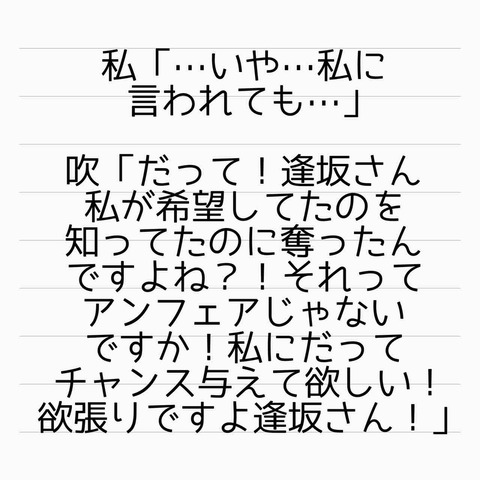 私「…いや…私に
言われても…」
吹「だって！逢坂さん
私が希望してたのを
知ってたのに奪ったん
ですよね？！それって
アンフェアじゃない
ですか！私にだって
チャンス与えて欲しい！
欲張りですよ逢坂さん！」